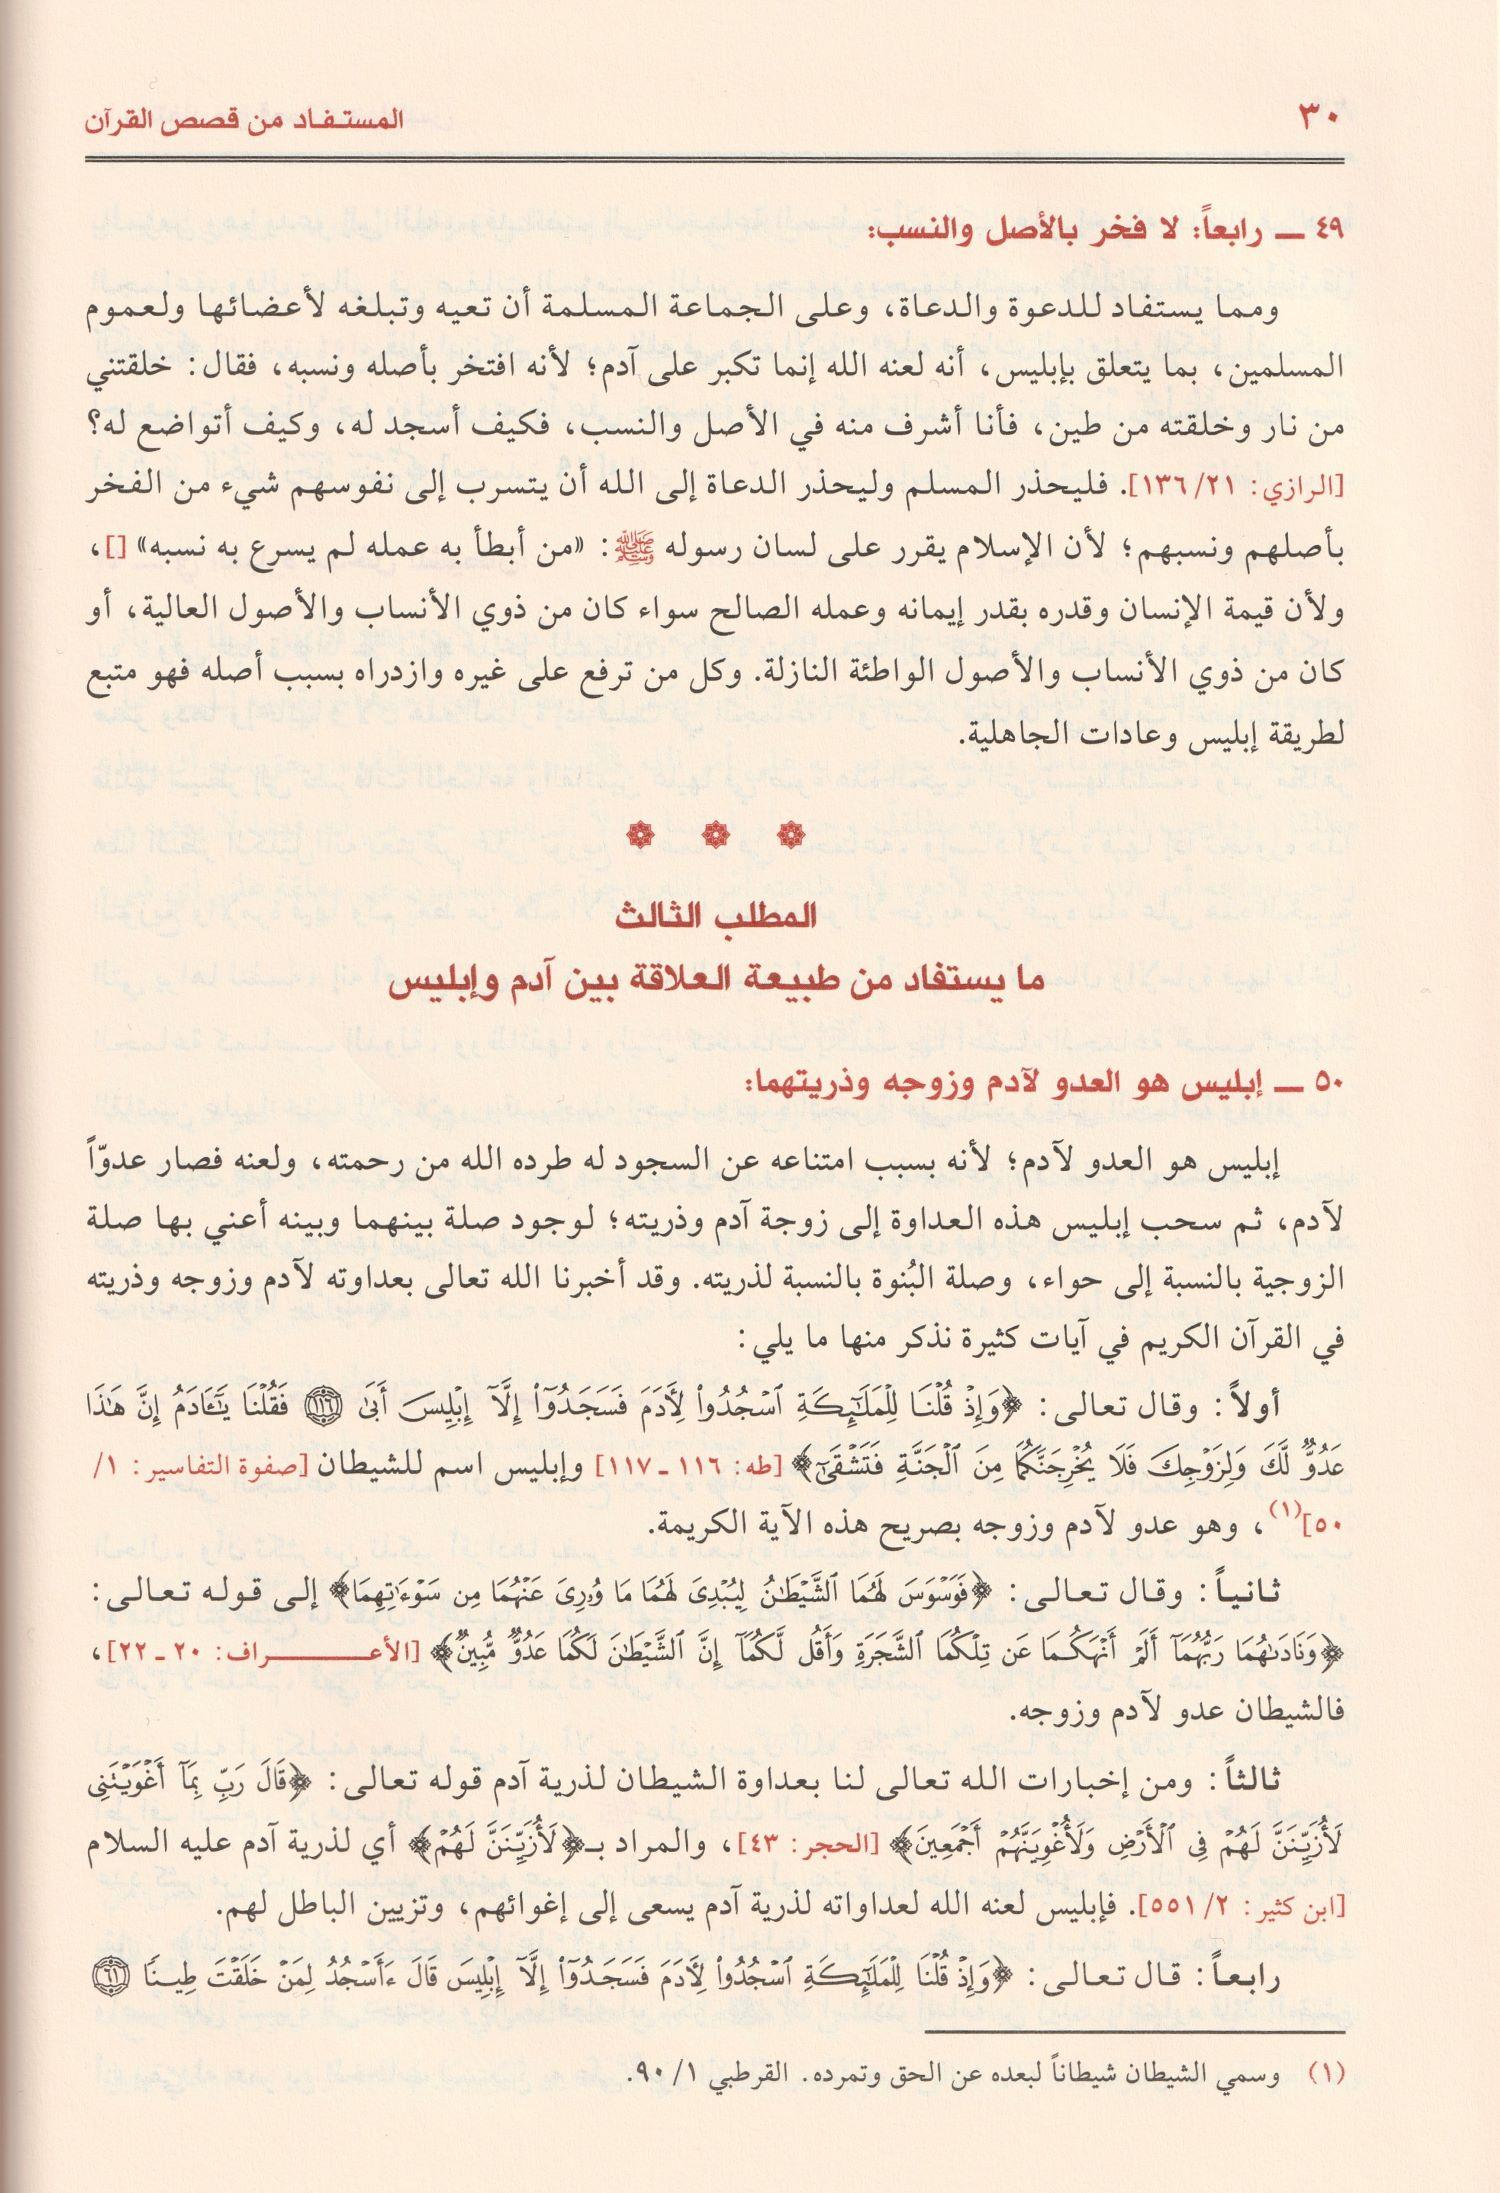 ٣٠
المستفاد من قصص القرآن
٤٩ ـ رابعاً: لا فخر بالأصل والنسب:
ومما يستفاد للدعوة والدعاة، وعلى الجماعة المسلمة أن تعيه وتبلغه لأعضائها ولعموم
المسلمين، بما يتعلق بإبليس، أنه لعنه الله إنما تكبر على آدم؛ لأنه افتخر بأصله ونسبه، فقال: خلقتني
من نار وخلقته من طين، فأنا أشرف منه في الأصل والنسب، فكيف أسجد له، وكيف أتواضع له؟
[الرازي: ٢١/ ١٣٦]. فليحذر المسلم وليحذر الدعاة إلى الله أن يتسرب إلى نفوسهم شيء من الفخر
بأصلهم ونسبهم؛ لأن الإسلام يقرر على لسان رسوله ﷺ: «من أبطأ به عمله لم يسرع به نسبه» []،
ولأن قيمة الإنسان وقدره بقدر إيمانه وعمله الصالح سواء كان من ذوي الأنساب والأصول العالية، أو
كان من ذوي الأنساب والأصول الواطئة النازلة. وكل من ترفع على غيره وازدراه بسبب أصله فهو متبع
لطريقة إبليس وعادات الجاهلية.
المطلب الثالث
ما يستفاد من طبيعة العلاقة بين آدم وإبليس
٥٠ ـ إبليس هو العدو لآدم وزوجه وذريتهما:
إبليس هو العدو لآدم؛ لأنه بسبب امتناعه عن السجود له طرده الله من رحمته، ولعنه فصار عدوّاً
لآدم، ثم سحب إبليس هذه العداوة إلى زوجة آدم وذريته؛ لوجود صلة بينهما وبينه أعني بها صلة
الزوجية بالنسبة إلى حواء، وصلة البُنوة بالنسبة لذريته. وقد أخبرنا الله تعالى بعداوته لآدم وزوجه وذريته
في القرآن الكريم في آيات كثيرة نذكر منها ما يلي:
أولاً: وقال تعالى: ﴿وَإِذْ قُلْنَا لِلْمَلَٰٓئِكَةِ ٱسْجُدُواْ لِأَدَمَ فَسَجَدُوٓاْ إِلَّآ إِبْلِيسَ أَبَىٰ ١١٦ فَقُلْنَا يَٰٓـَٔادَمُ إِنَّ هَٰذَا
عَدُوٌّ لَّكَ وَلِزَوْجِكَ فَلَا يُخْرِجَنَّكُمَا مِنَ ٱلْجَنَّةِ فَتَشْقَىٰٓ﴾ [طه: ١١٦ ـ ١١٧] وإبليس اسم للشيطان [صفوة التفاسير: ١/
٥٠](١)، وهو عدو لآدم وزوجه بصريح هذه الآية الكريمة.
ثانياً: وقال تعالى: ﴿فَوَسْوَسَ لَهُمَا ٱلشَّيْطَٰنُ لِيُبْدِىَ لَهُمَا مَا وُۥرِىَ عَنْهُمَا مِن سَوْءَٰتِهِمَا﴾ إلى قوله تعالى:
﴿وَنَادَىٰهُمَا رَبُّهُمَآ أَلَمْ أَنْهَكُمَا عَن تِلْكُمَا ٱلشَّجَرَةِ وَأَقُل لَّكُمَآ إِنَّ ٱلشَّيْطَٰنَ لَكُمَا عَدُوٌّ مُّبِينٌ﴾ [الأعـــراف: ٢٠ ـ ٢٢]،
فالشيطان عدو لآدم وزوجه.
ثالثاً: ومن إخبارات الله تعالى لنا بعداوة الشيطان لذرية آدم قوله تعالى: ﴿قَالَ رَبِّ بِمَآ أَغْوَيْتَنِى
لَأُزَيِّنَنَّ لَهُمْ فِى ٱلْأَرْضِ وَلَأُغْوِيَنَّهُمْ أَجْمَعِينَ﴾ [الحجر: ٤٣]، والمراد بـ﴿لَأُزَيِّنَنَّ لَهُمْ﴾ أي لذرية آدم عليه السلام
[ابن كثير: ٢/ ٥٥١]. فإبليس لعنه الله لعداواته لذرية آدم يسعى إلى إغوائهم، وتزيين الباطل لهم.
رابعاً: قال تعالى: ﴿وَإِذْ قُلْنَا لِلْمَلَٰٓئِكَةِ ٱسْجُدُواْ لِأَدَمَ فَسَجَدُوٓاْ إِلَّآ إِبْلِيسَ قَالَ ءَأَسْجُدُ لِمَنْ خَلَقْتَ طِينًا ٦١
(١) وسمي الشيطان شيطاناً لبعده عن الحق وتمرده. القرطبي ١/ ٩٠.